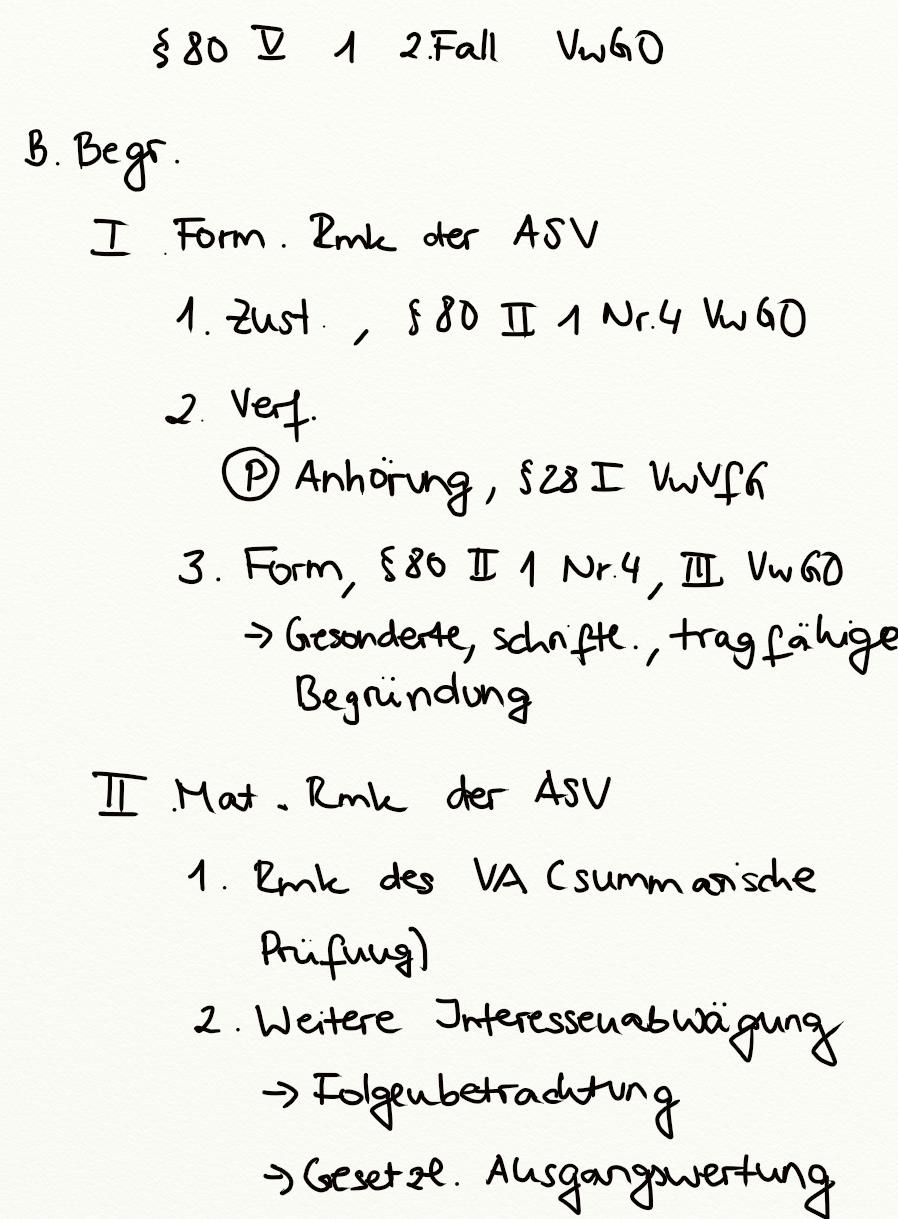 § 80 V 1 2.Fall VwGO
B. Begr.
I Form. Rmk der ASV
1. Zust., § 80 II 1 Nr.4 VwGO
2. Verf.
Ⓟ Anhörung, § 28 I VwVfG
3. Form, § 80 II 1 Nr.4, III VwGO
→ Gesonderte, schriftl., tragfähige
Begründung
II Mat. Rmk der ASV
1. Rmk des VA (summarische
Prüfung)
2. Weitere Interessenabwägung
→ Folgenbetrachtung
→ Gesetzl. Ausgangswertung